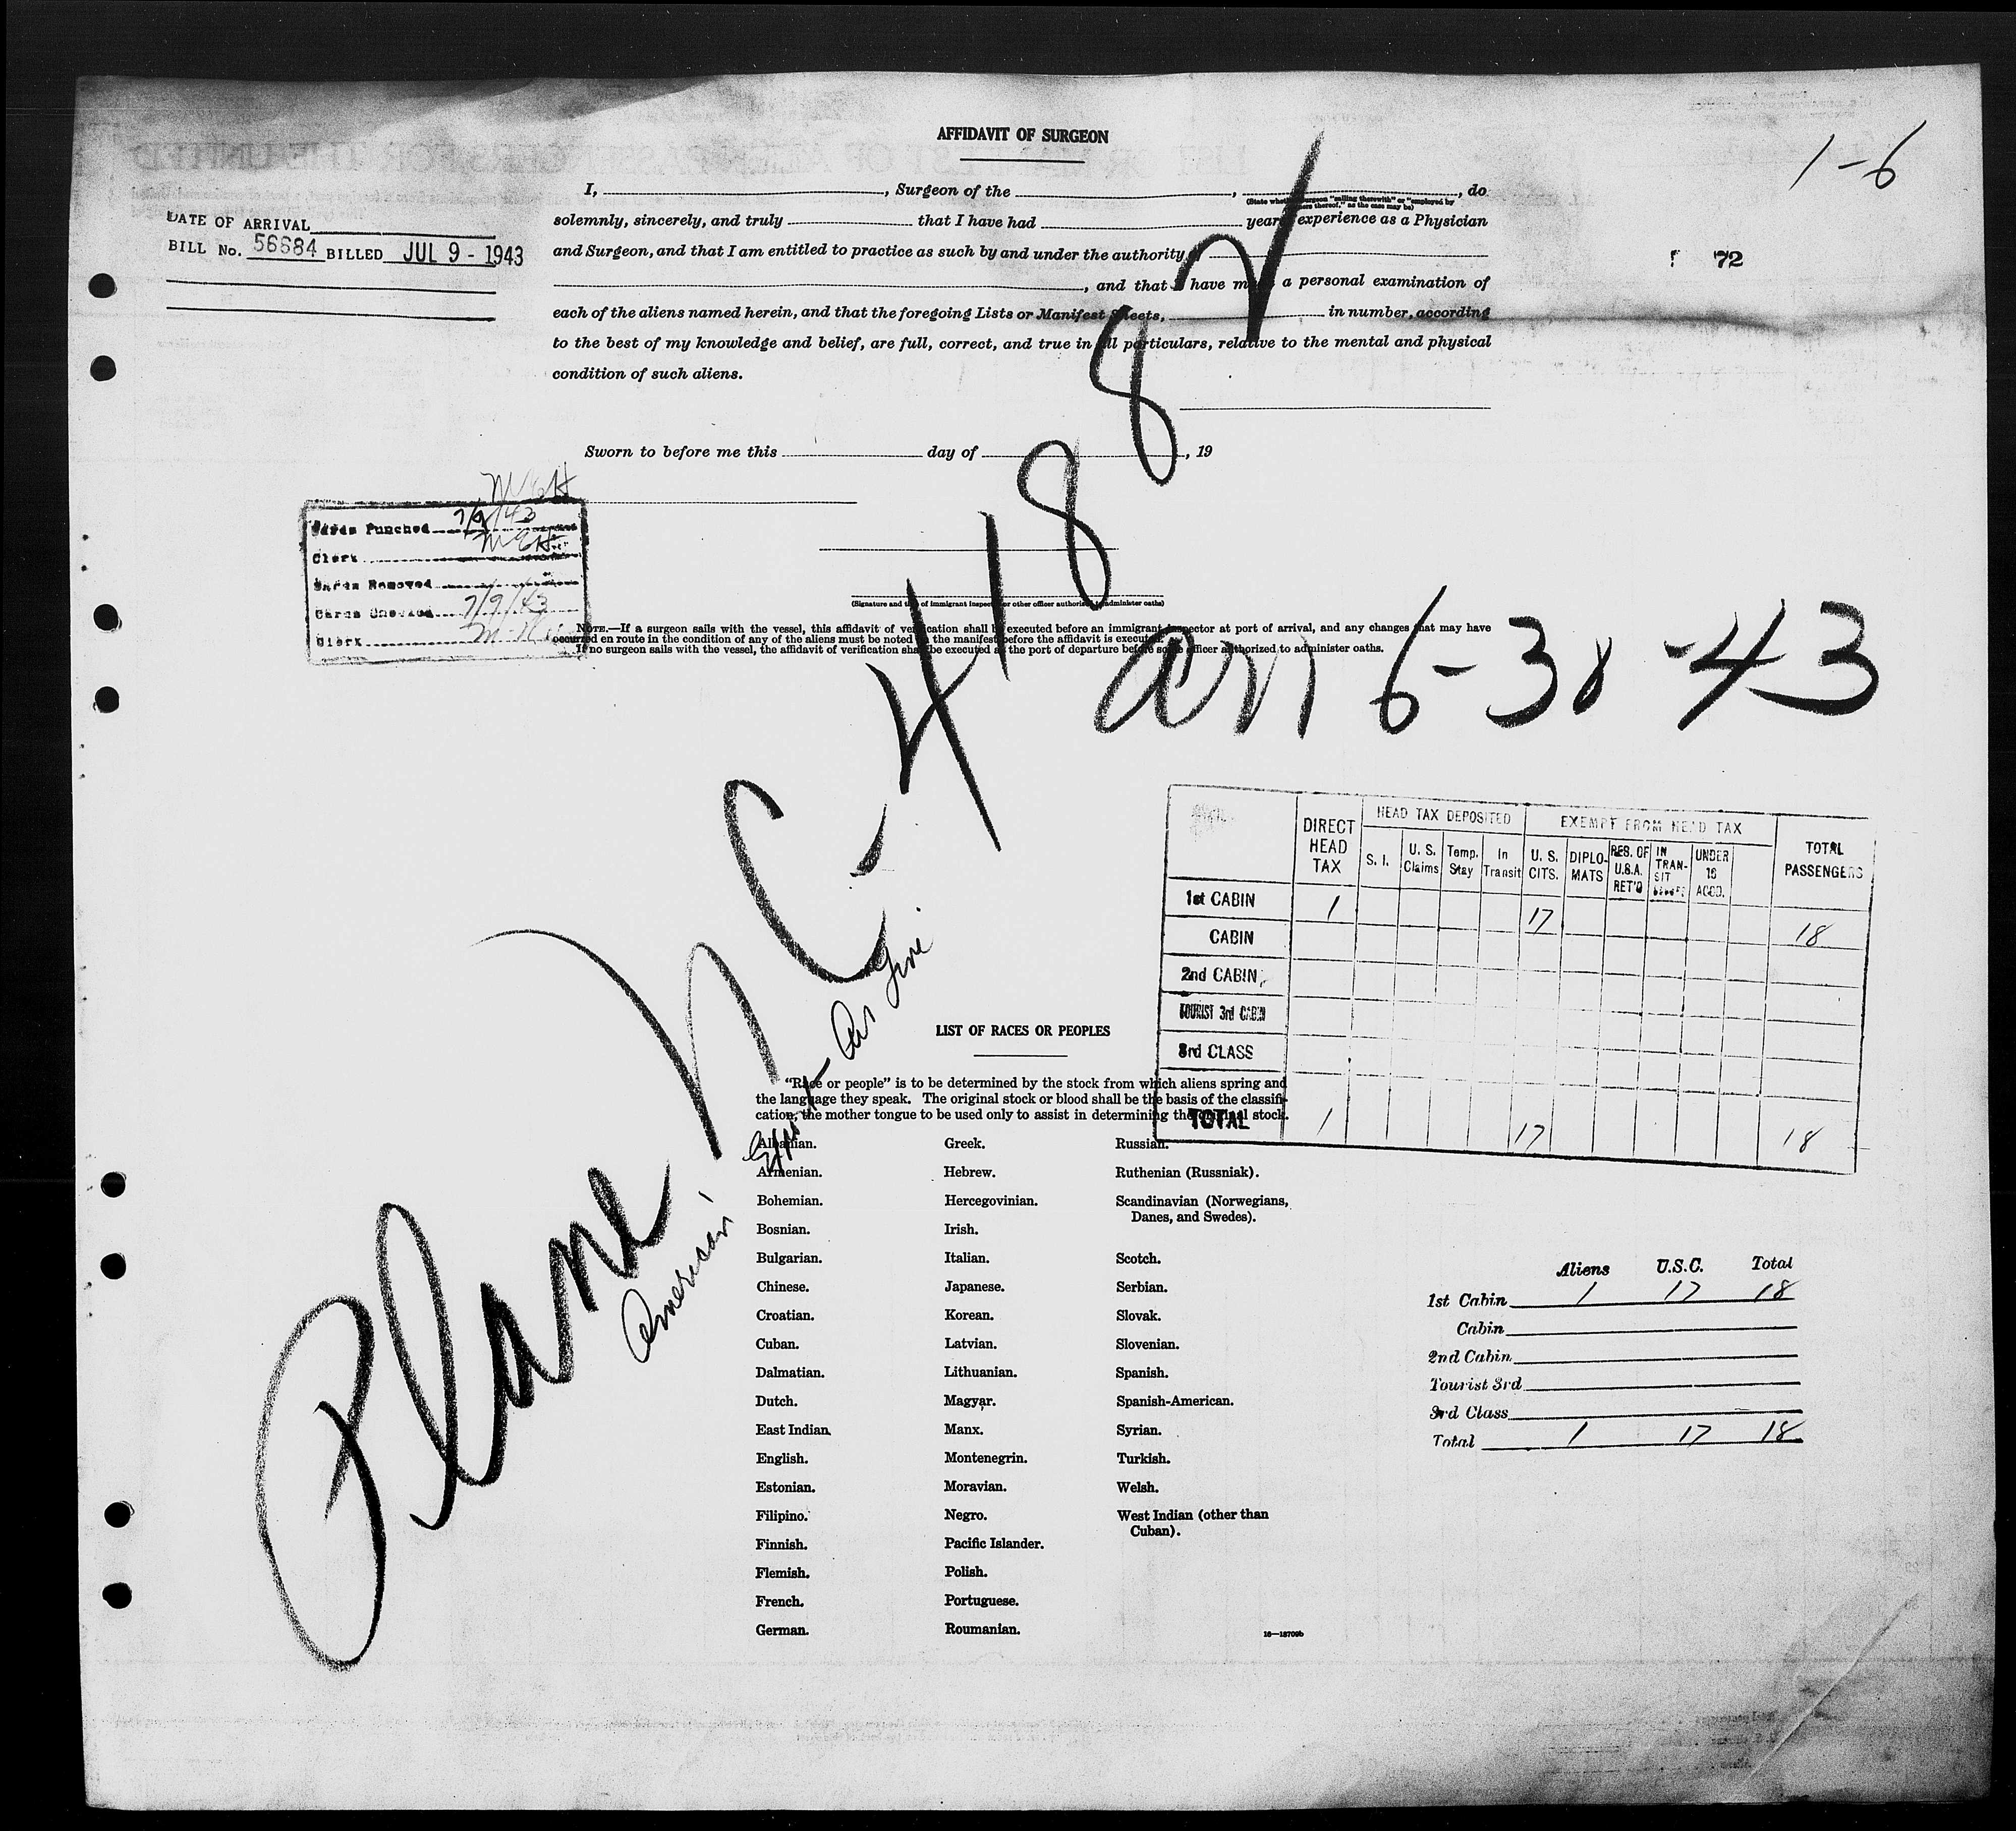 AFFIDAVIT OF SURGEON
1-6
I, , Surgeon of the , , do
(State whether surgeon "sailing therewith" or "employed by
owners thereof," as the case may be)
solemnly, sincerely, and truly that I have had years' experience as a Physician
and Surgeon, and that I am entitled to practice as such by and under the authority of
, and that I have made a personal examination of
each of the aliens named herein, and that the foregoing Lists or Manifest Sheets, in number, according
to the best of my knowledge and belief, are full, correct, and true in all particulars, relative to the mental and physical
condition of such aliens.
DATE OF ARRIVAL
BILL No. 56684 BILLED JUL 9 - 1943
72
Sworn to before me this day of , 19
Cards Punched 7/9/43
Clerk
Cards Removed
Cards Checked 7/9/43
Clerk
(Signature and title of immigrant inspector or other officer authorized to administer oaths)
NOTE.—If a surgeon sails with the vessel, this affidavit of verification shall be executed before an immigrant inspector at port of arrival, and any changes that may have
occurred en route in the condition of any of the aliens must be noted on the manifest before the affidavit is executed.
If no surgeon sails with the vessel, the affidavit of verification shall be executed at the port of departure before some officer authorized to administer oaths.
Plane NC-41881
arr 6-30-43
American Export Air Line
DIRECT HEAD TAX HEAD TAX DEPOSITED EXEMPT FROM HEAD TAX TOTAL PASSENGERS
S. I. U. S. Claims Temp. Stay In Transit U. S. CITS. DIPLO-MATS RES. OF U.S.A. RET'D IN TRAN-SIT UNDER 16 ACCD.
1st CABIN 1 17 18
CABIN
2nd CABIN
TOURIST 3rd CABIN
3rd CLASS
TOTAL 1 17 18
LIST OF RACES OR PEOPLES
"Race or people" is to be determined by the stock from which aliens spring and
the language they speak. The original stock or blood shall be the basis of the classifi-
cation, the mother tongue to be used only to assist in determining the original stock.
Albanian.
Armenian.
Bohemian.
Bosnian.
Bulgarian.
Chinese.
Croatian.
Cuban.
Dalmatian.
Dutch.
East Indian.
English.
Estonian.
Filipino.
Finnish.
Flemish.
French.
German.
Greek.
Hebrew.
Hercegovinian.
Irish.
Italian.
Japanese.
Korean.
Latvian.
Lithuanian.
Magyar.
Manx.
Montenegrin.
Moravian.
Negro.
Pacific Islander.
Polish.
Portuguese.
Roumanian.
Russian.
Ruthenian (Russniak).
Scandinavian (Norwegians,
Danes, and Swedes).
Scotch.
Serbian.
Slovak.
Slovenian.
Spanish.
Spanish-American.
Syrian.
Turkish.
Welsh.
West Indian (other than
Cuban).
16—18709b
Aliens U.S.C. Total
1st Cabin 1 17 18
Cabin
2nd Cabin
Tourist 3rd
3rd Class
Total 1 17 18